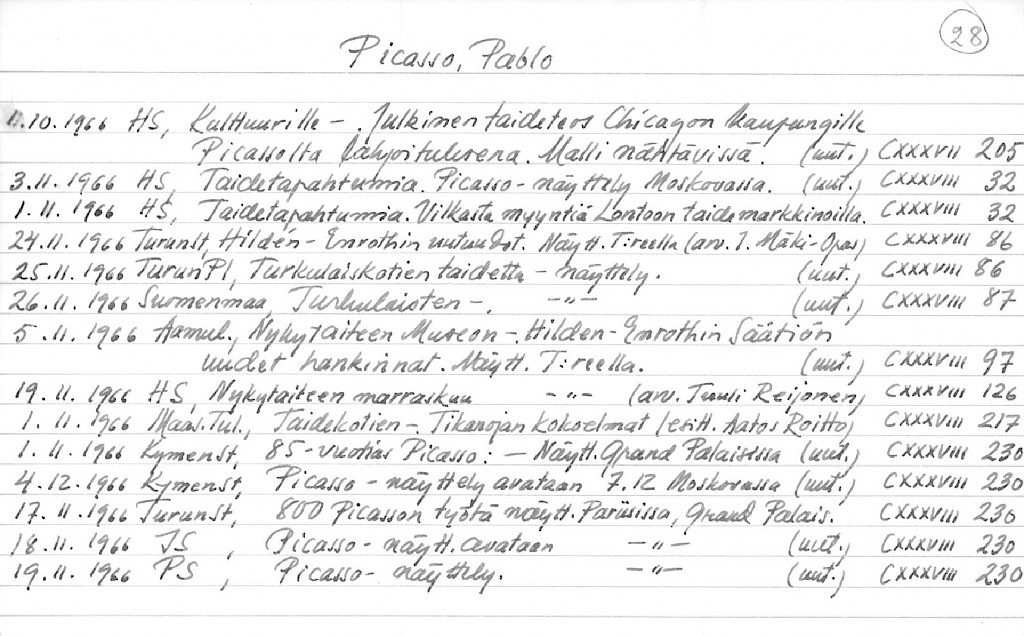 28
Picasso, Pablo
11.10.1966 HS, Kulttuurille – . Julkinen taideteos Chicagon kaupungille
Picassolta lahjoituksena. Malli nähtävissä. (uut.) CXXXVII 205
3.11.1966 HS, Taidetapahtumia. Picasso-näyttely Moskovassa. (uut.) CXXXVIII 32
1.11.1966 HS, Taidetapahtumia. Vilkasta myyntiä Lontoon taidemarkkinoilla. CXXXVIII 32
24.11.1966 Turunst, Hildén-Enrothin uutuudet. Näytt. T:reella (arv. J. Mäki-Opas) CXXXVIII 86
25.11.1966 TurunPl, Turkulaiskotien taidetta – näyttely. (uut.) CXXXVIII 86
26.11.1966 Suomenmaa, Turkulaisten – . –"– (uut.) CXXXVIII 87
5.11.1966 Aamul., Nykytaiteen Museon – . Hilden-Enrothin Säätiön
uudet hankinnat. Näytt. T:reella. (uut.) CXXXVIII 97
19.11.1966 HS, Nykytaiteen marraskuu –"– (arv. Tuuli Reijonen) CXXXVIII 126
1.11.1966 Maas.Tul., Taidekotien – . Tikanojan kokoelmat (esitt. Aatos Roitto) CXXXVIII 217
1.11.1966 Kymenst, 85-vuotias Picasso: – Näytt. Grand Palaisissa (uut.) CXXXVIII 230
4.12.1966 Kymenst, Picasso-näyttely avataan 7.12 Moskovassa (uut.) CXXXVIII 230
17.11.1966 Turunst, 800 Picasson työtä näytt. Pariisissa, Grand Palais. CXXXVIII 230
18.11.1966 JS, Picasso-näytt. avataan –"– (uut.) CXXXVIII 230
19.11.1966 PS, Picasso-näyttely. –"– (uut.) CXXXVIII 230